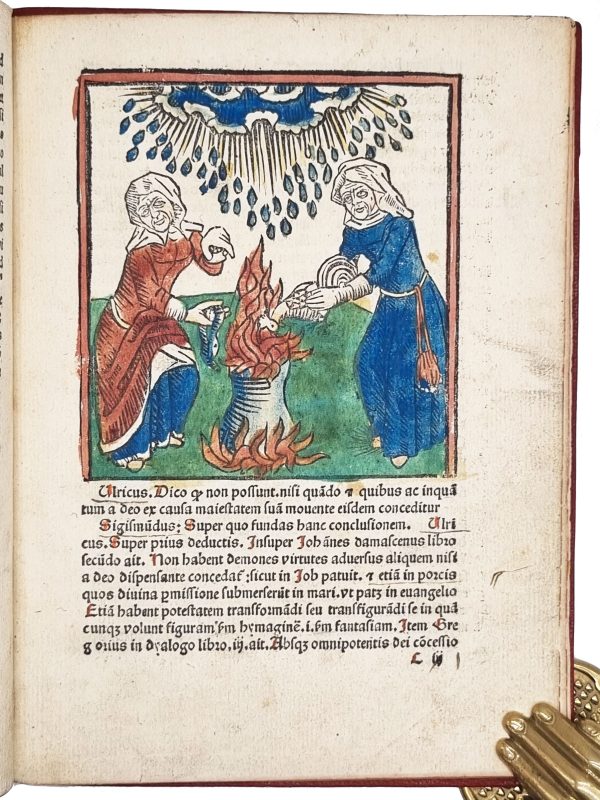 Ulricus. Dico ꝙ non possunt. nisi quādo ⁊ quibus ac inquā
tum a deo ex causa maiestatem suā movente eisdem conceditur
Sigismūdus: Super quo fundas hanc conclusionem. Ulri
cus. Super prius deductis. Insuper Johānes damascenus libro
secūdo ait. Non habent demones virtutes adversus aliquem nisi
a deo dispensante concedat᷑: sicut in Job patuit. ⁊ etiā in porcis
quos divina ꝑmissione submerserūt in mari. vt patꝫ in evangelio
Etiā habent potestatem transformādi seu transfigurādi se in quā
cunqꝫ volunt figuram ẜm hymaginē. i. ẜm fantasiam. Item Gre
gorius in dyalogo libro. iij. ait. Absqꝫ omnipotentis dei cōcessio